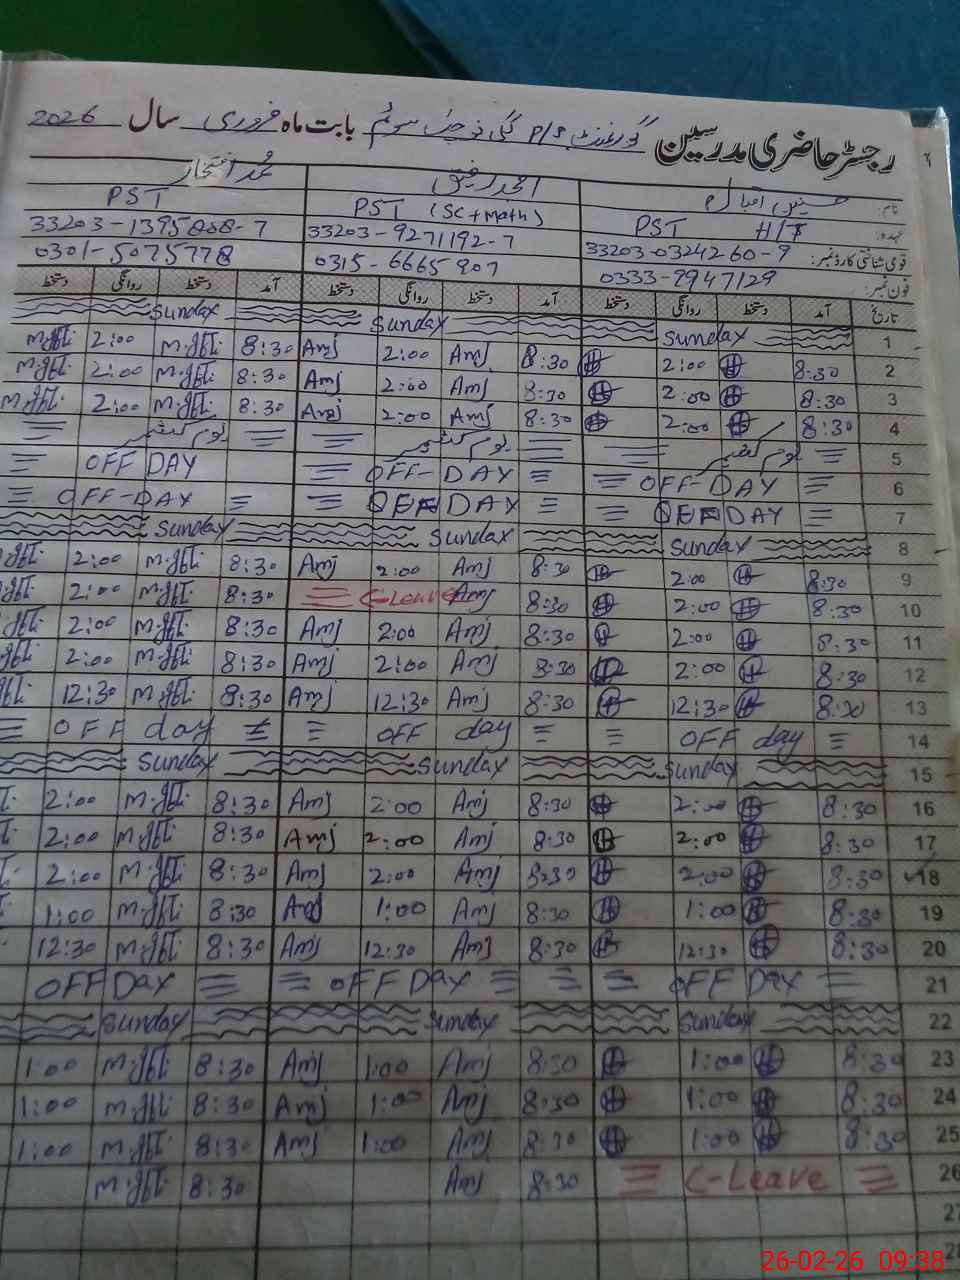 رجسٹر حاضری مدرسین گورنمنٹ P/S بابت ماہ فروری سال 2026
نام: امجد رفیق محمد افتخار
عہدہ: PST H/T PST (SC+Math) PST
قومی شناختی کارڈ نمبر: 33203-0324260-9 33203-9271192-7 33203-1395888-7
فون نمبر: 0333-9947129 0315-6665907 0301-5075778
تاریخ آمد دستخط روانگی دستخط آمد دستخط روانگی دستخط آمد دستخط روانگی دستخط
1 Sunday Sunday Sunday
2 8:30 2:00 8:30 Amj 2:00 Amj 8:30 2:00
3 8:30 2:00 8:30 Amj 2:00 Amj 8:30 2:00
4 8:30 2:00 8:30 Amj 2:00 Amj 8:30 2:00
5 یوم کشمیر یوم کشمیر یوم کشمیر
6 OFF-DAY OFF-DAY OFF DAY
7 OFF DAY OFF DAY OFF-DAY
8 Sunday Sunday Sunday
9 8:30 2:00 8:30 Amj 2:00 Amj 8:30 2:00
10 8:30 2:00 8:30 Amj C-Leave 8:30 2:00
11 8:30 2:00 8:30 Amj 2:00 Amj 8:30 2:00
12 8:30 2:00 8:30 Amj 2:00 Amj 8:30 2:00
13 8:30 12:30 8:30 Amj 12:30 Amj 8:30 12:30
14 OFF day OFF day OFF day
15 Sunday Sunday Sunday
16 8:30 2:00 8:30 Amj 2:00 Amj 8:30 2:00
17 8:30 2:00 8:30 Amj 2:00 Amj 8:30 2:00
18 8:30 2:00 8:30 Amj 2:00 Amj 8:30 2:00
19 8:30 1:00 8:30 Amj 1:00 Amj 8:30 1:00
20 8:30 12:30 8:30 Amj 12:30 Amj 8:30 12:30
21 OFF Day OFF Day OFF Day
22 Sunday Sunday Sunday
23 8:30 1:00 8:30 Amj 1:00 Amj 8:30 1:00
24 8:30 1:00 8:30 Amj 1:00 Amj 8:30 1:00
25 8:30 1:00 8:30 Amj 1:00 Amj 8:30 1:00
26 C-Leave 8:30 Amj 8:30
27
28
26-02-26 09:38